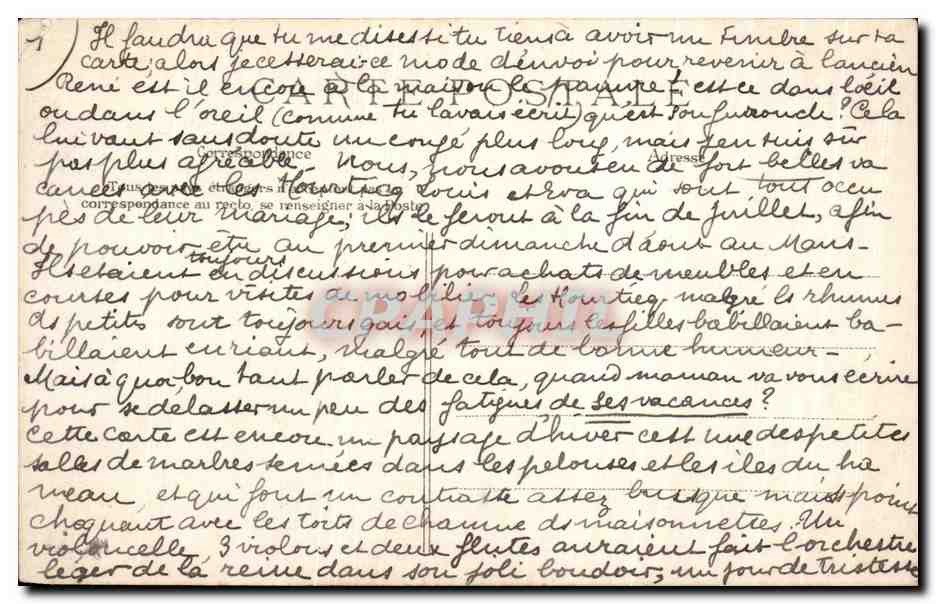 1) Il faudra que tu me dises si tu tiens à avoir un timbre sur ta
carte; alors je cesserai ce mode d'envoi pour revenir à l'ancien
CARTE POSTALE
René est il encore à la maison le pauvre! est ce dans l'oeil
ou dans l'oreil (comme tu l'avais écrit) qu'est son furoncle? Cela
lui vaut sans doute un congé plus long, mais j'en suis sûr
Correspondance
Adresse
pas plus agréable. Nous, nous avons eu de fort belles va
cances avec les Hourtieq Louis et Eva qui sont tout occu
Tous les pays étrangers n'acceptent pas la
correspondance au recto, se renseigner à la Poste
pés de leur mariage; ils le feront à la fin de Juillet, afin
de pouvoir être au premier dimanche d'août au Mans -
Ils etaient toujours en discussions pour achats de meubles et en
courses pour visites de mobilier. Les Hourtieq, malgré ls rhumes
ds petits sont toujours gais, et toujours les filles babillaient ba-
CPAPHIL
billaient en riant, malgré tout de bonne humeur -
Mais à quoi bon tant parler de cela, quand maman va vous écrire
pour se délasser un peu des fatigues de ses vacances?
Cette carte est encore un paysage d'hiver c'est une des petites
salles de marbre semées dans les pelouses et les iles du ha
meau et qui font un contraste assez brusque mais point
choquant avec les toits de chaume ds maisonnettes. Un
violoncelle, 3 violons et deux flutes auraient fait l'orchestre
léger de la reine dans son joli boudoir, un jour de tristesse